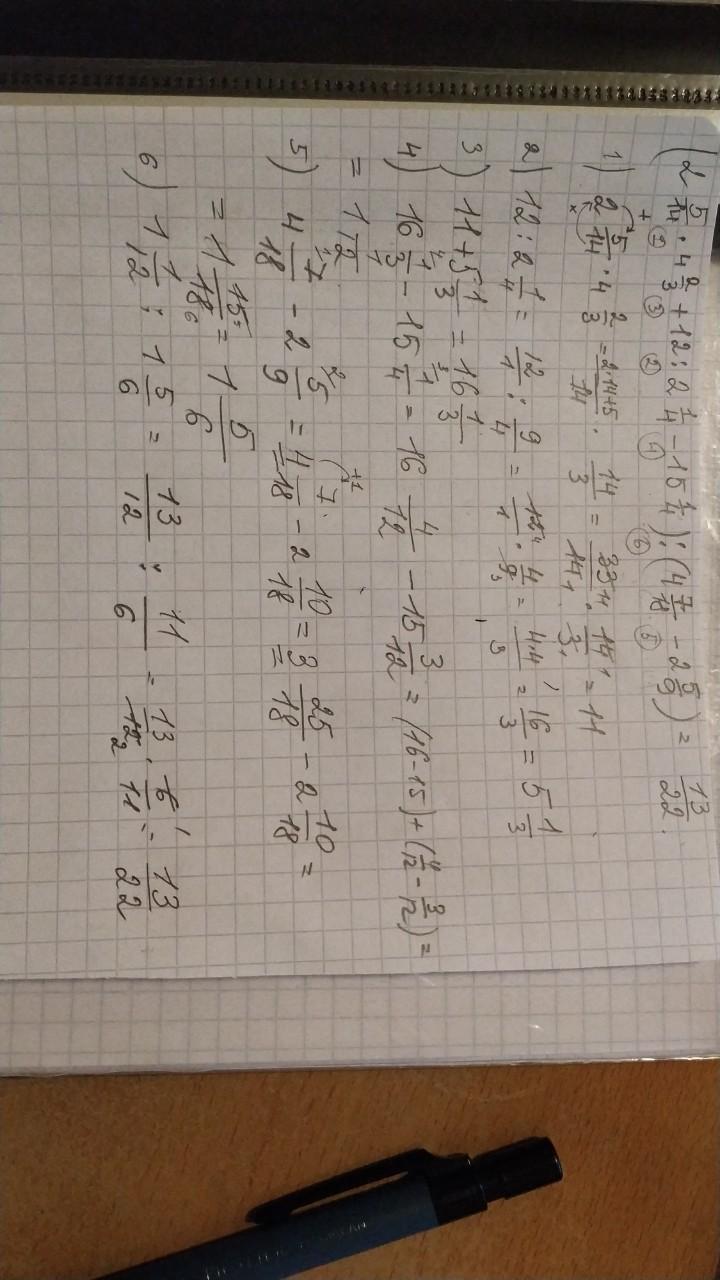 (2 5/14 · 4 2/3 + 12 : 2 1/4 − 15 1/4) : (4 7/18 − 2 5/9) = 13/22.
1) 2 5/14 · 4 2/3 = (2·14+5)/14 · 14/3 = 33/14 · 14/3 = 11
2) 12 : 2 1/4 = 12/1 : 9/4 = 12/1 · 4/9 = 4·4/3 = 16/3 = 5 1/3
3) 11 + 5 1/3 = 16 1/3
4) 16 1/3 − 15 1/4 = 16 4/12 − 15 3/12 = (16-15) + (4/12 − 3/12) =
= 1 1/12
5) 4 7/18 − 2 5/9 = 4 7/18 − 2 10/18 = 3 25/18 − 2 10/18 =
= 1 15/18 = 1 5/6
6) 1 1/12 : 1 5/6 = 13/12 : 11/6 = 13/12 · 6/11 = 13/22